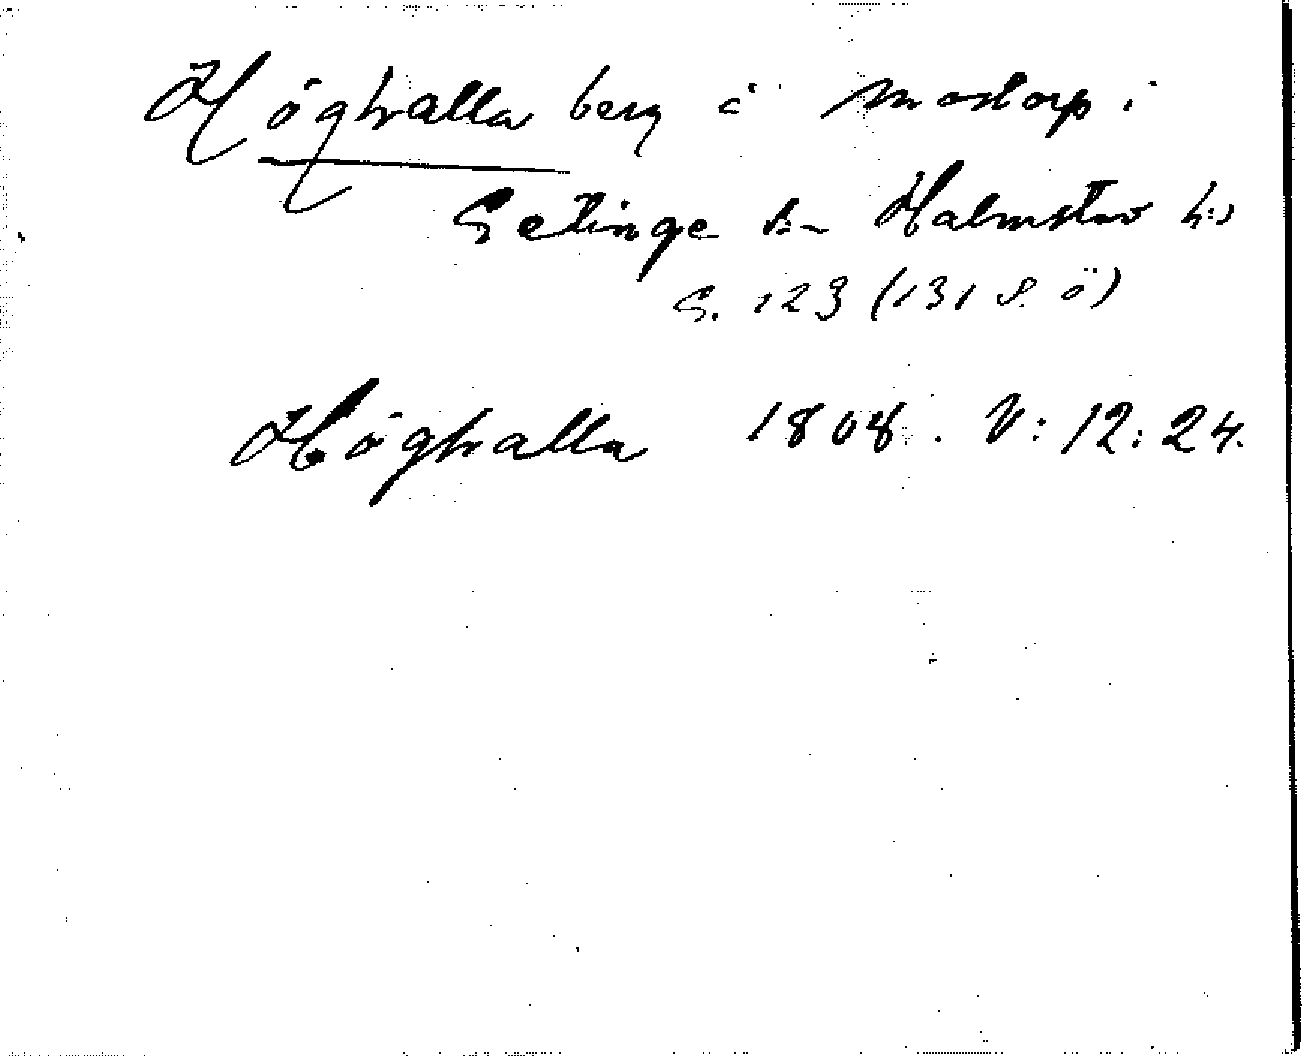 Höghalla berg å Mostorp i
Getinge sn Halmstad hd
G. 123 (131 S. ö)
Höghalla 1808. V: 12: 24.